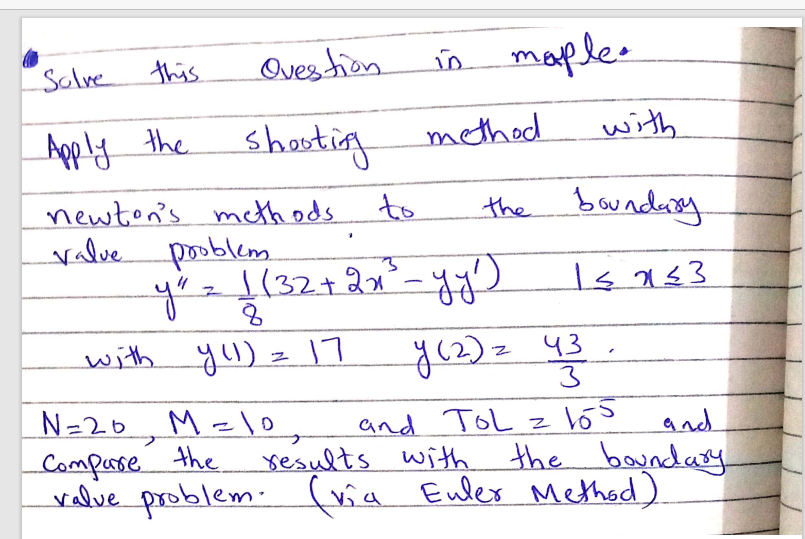 Solve this Question in maple.
Apply the shooting method with
newton's methods to the boundary
value problem
y" = 1/8 (32+2x³-yy') 1 ≤ x ≤ 3
with y(1) = 17 y(2) = 43/3 .
N=20, M=10, and TOL = 10⁵ and
Compare the results with the boundary
value problem. (via Euler Method)